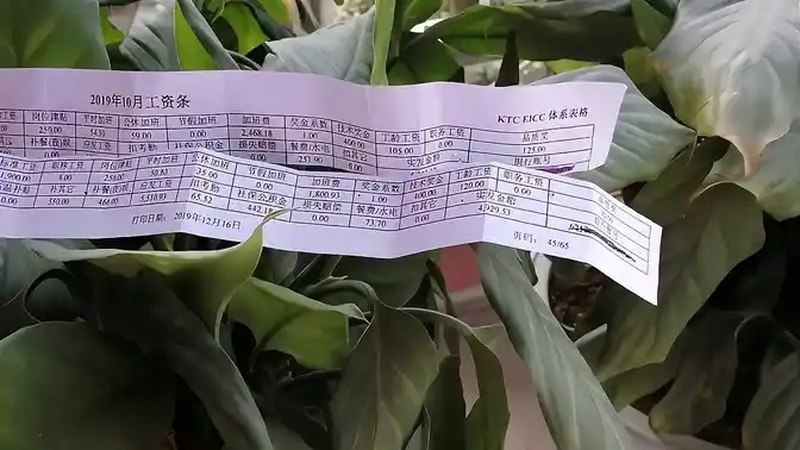 2019年10月工资条 KTC EICC 体系表格
岗位津贴 平时加班 公休加班 节假加班 加班费 奖金系数 技术奖金 工龄工资 职务工资 品质奖
250.00 54.50 59.00 0.00 2,468.18 1.00 400.00 105.00 0.00 125.00
补餐(夜)限 应发工资 扣考勤 社保公积金 损失赔偿 餐费/水电 扣其它 实发金额 银行账号
0.00 251.90 0.00
标准工资 岗位津贴 平时加班 公休加班 节假加班 加班费 奖金系数 技术奖金 工龄工资 职务工资
250.00 50.50 35.00 0.00 1,800.93 1.00 400.00 120.00 0.00
补其它 补餐(夜)限 应发工资 扣考勤 社保公积金 损失赔偿 餐费/水电 扣其它 实发金额
0.00 550.00 464.00 5,510.93 65.52 442.18 0.00 73.70 0.00 4,929.53
打印日期: 2019年12月16日 页码: 45/65